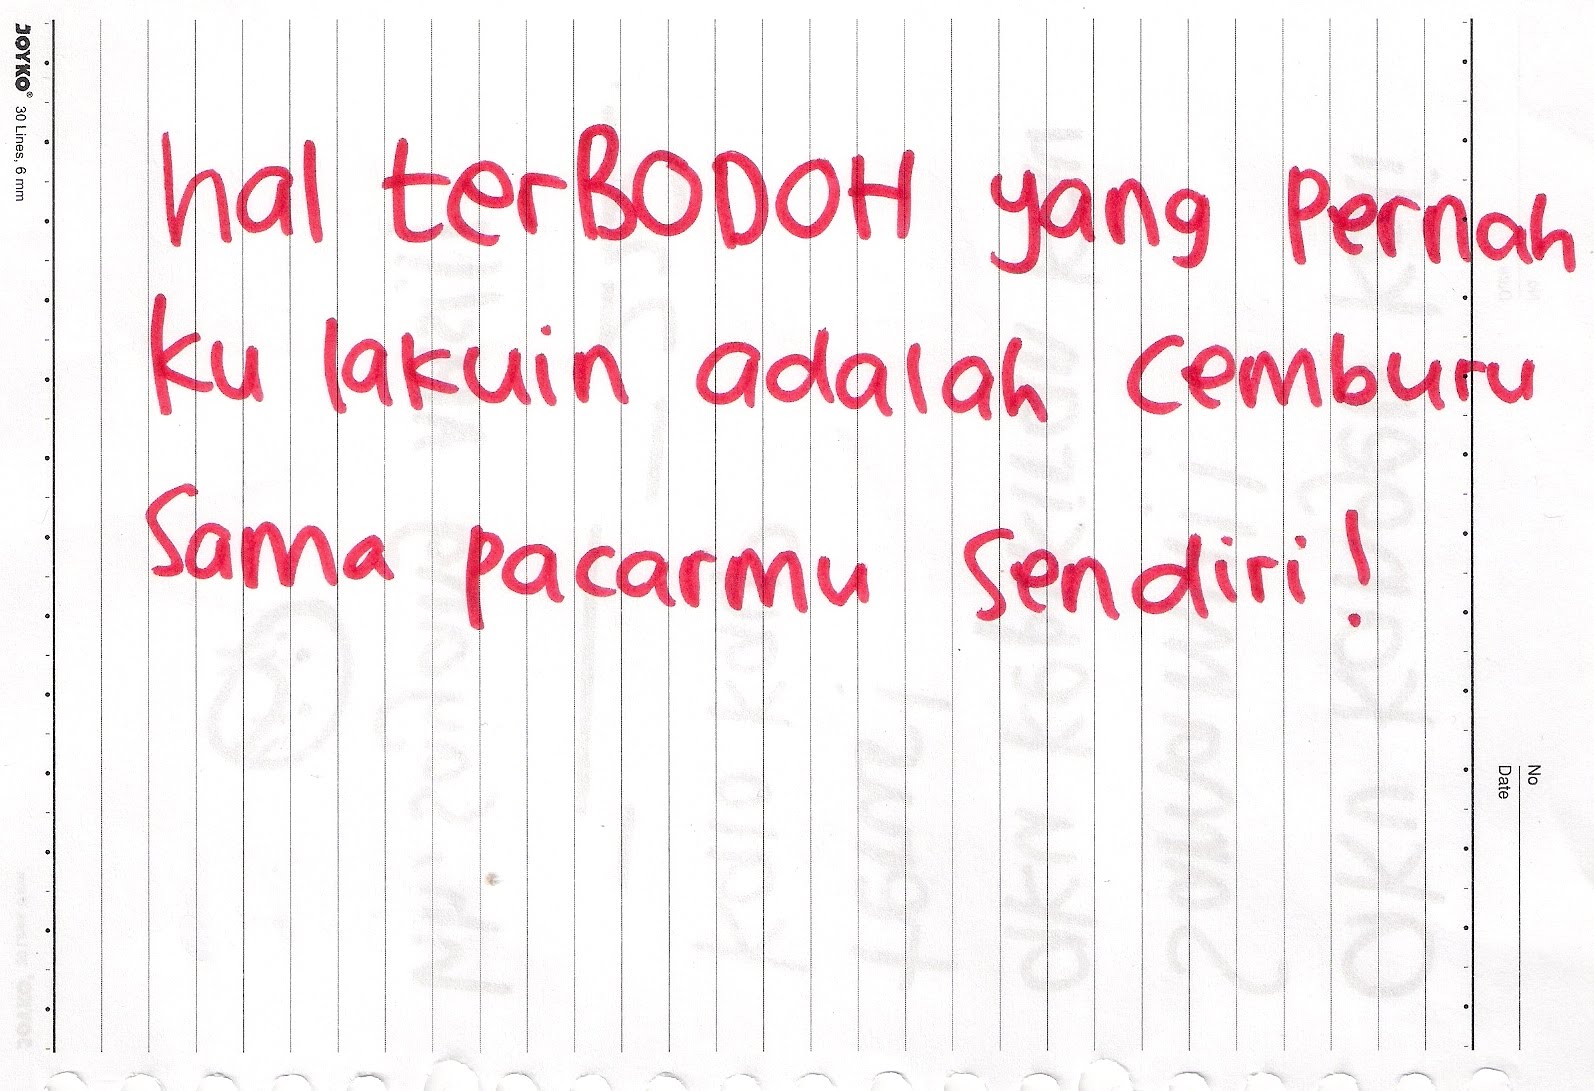 hal terBODOH yang pernah
ku lakuin adalah cemburu
sama pacarmu sendiri!
JOYKO® 30 Lines, 6 mm
No
Date